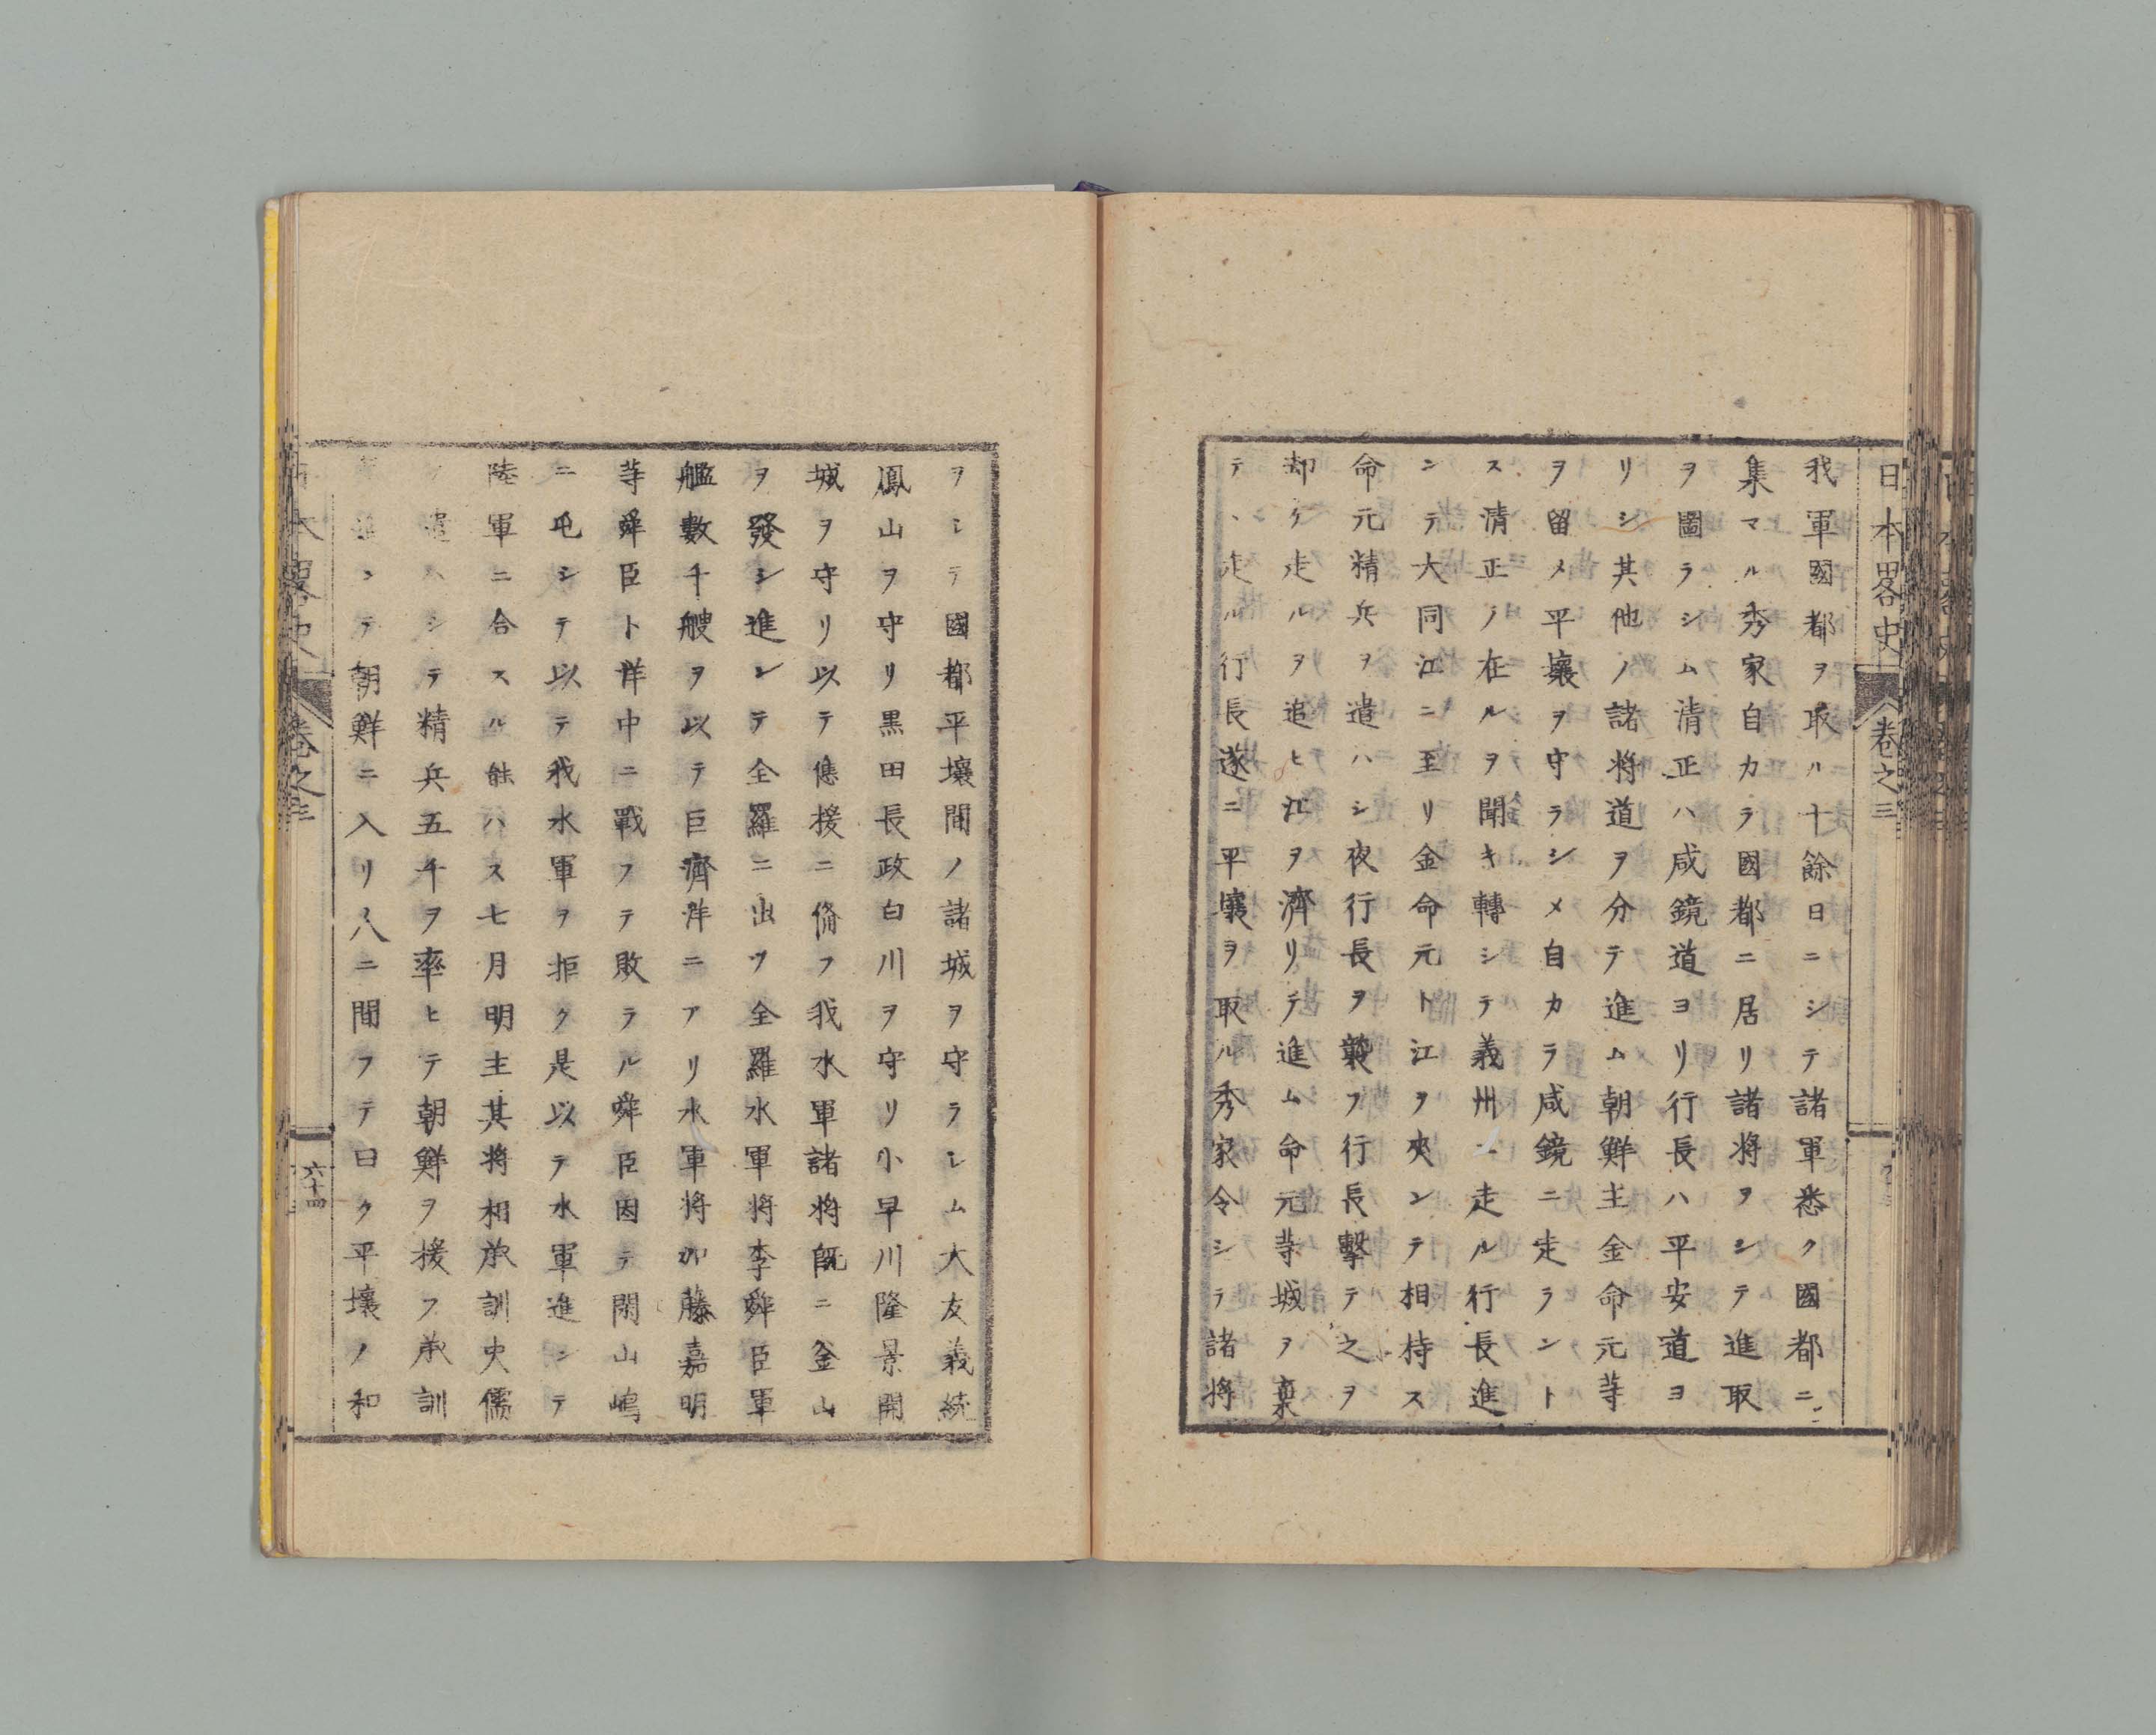 日本畧史 卷之三
我軍國都ヲ取ル十餘日ニシテ諸軍悉ク國都ニ
集マル秀家自カラ國都ニ居リ諸将ヲシテ進取
ヲ圖ラシム清正ハ咸鏡道ヨリ行長ハ平安道ヨ
リシ其他ノ諸将道ヲ分テ進ム朝鮮主金命元等
ヲ留メ平壤ヲ守ラシメ自カラ咸鏡ニ走ラント
ス清正ノ在ルヲ聞キ轉シテ義州ニ走ル行長進
ンテ大同江ニ至リ金命元ト江ヲ夾ンテ相持ス
命元精兵ヲ遣ハシ夜行長ヲ襲フ行長擊テ之ヲ
却ケ走ルヲ追ヒ江ヲ濟リテ進ム命元等城ヲ棄
テヽ走ル行長遂ニ平壤ヲ取ル秀家令シテ諸将
ヲシテ國都平壤間ノ諸城ヲ守ラシム大友義統
鳳山ヲ守リ黒田長政白川ヲ守リ小早川隆景開
城ヲ守リ以テ應援ニ備フ我水軍諸将既ニ釜山
ヲ發シ進ンテ全羅ニ出ツ全羅水軍将李舜臣軍
艦數千艘ヲ以テ巨濟洋ニアリ水軍将加藤嘉明
等舜臣ト洋中ニ戰フテ敗ラル舜臣因テ閑山嶋
ニ屯シテ以テ我水軍ヲ拒ク是以テ水軍進ンテ
陸軍ニ合スル能ハス七月明主其将相承訓史儒
ヲ遣ハシテ精兵五千ヲ率ヒテ朝鮮ヲ援フ承訓
等進ンテ朝鮮ニ入リ人ニ問フテ曰ク平壤ノ和
日本畧史 卷之三 六十四